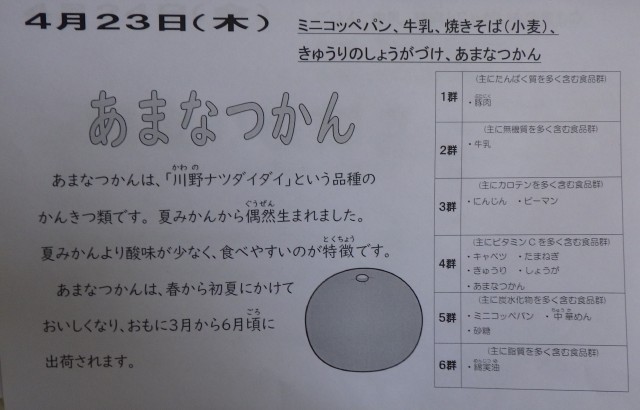 4月23日(木)
ミニコッペパン、牛乳、焼きそば(小麦)、
きゅうりのしょうがづけ、あまなつかん
あまなつかん
あまなつかんは、「川野ナツダイダイ」という品種の
かわの
かんきつ類です。夏みかんから偶然生まれました。
ぐうぜん
夏みかんより酸味が少なく、食べやすいのが特徴です。
とくちょう
あまなつかんは、春から初夏にかけて
おいしくなり、おもに3月から6月頃に
ごろ
出荷されます。
1群
(主にたんぱく質を多く含む食品群)
・豚肉
2群
(主に無機質を多く含む食品群)
・牛乳
3群
(主にカロテンを多く含む食品群)
・にんじん ・ピーマン
4群
(主にビタミンCを多く含む食品群)
・キャベツ ・たまねぎ
・きゅうり ・しょうが
・あまなつかん
5群
(主に炭水化物を多く含む食品群)
・ミニコッペパン ・中華めん
・砂糖
6群
(主に脂質を多く含む食品群)
・綿実油